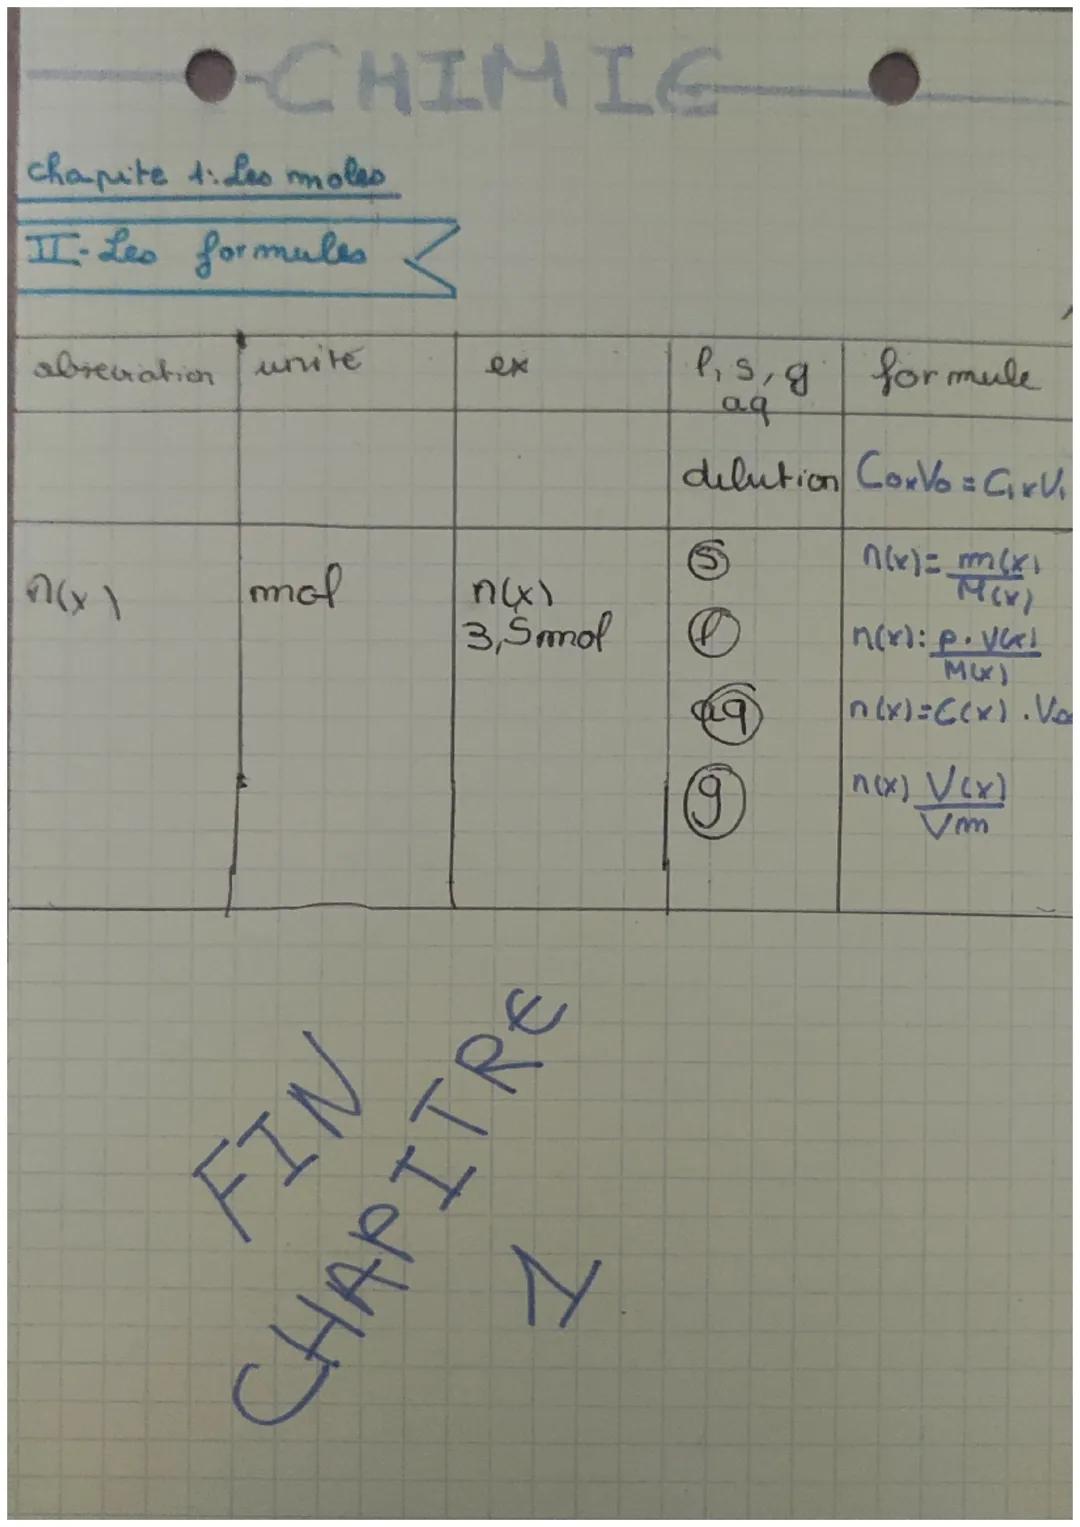 CHIMIE
chapite 1: Les moles
II- Les formules
abreviation unité ex l, s, g formule
aq
dilution C0xV0 = C1xV1
n(x) mol n(x) (s) n(x) = m(x)/M(x)
3,5 mol (l) n(x): ρ. V(x)/M(x)
(aq) n(x)=C(x) . V
(g) n(x) V(x)/Vm
FIN
CHAPITRE
1